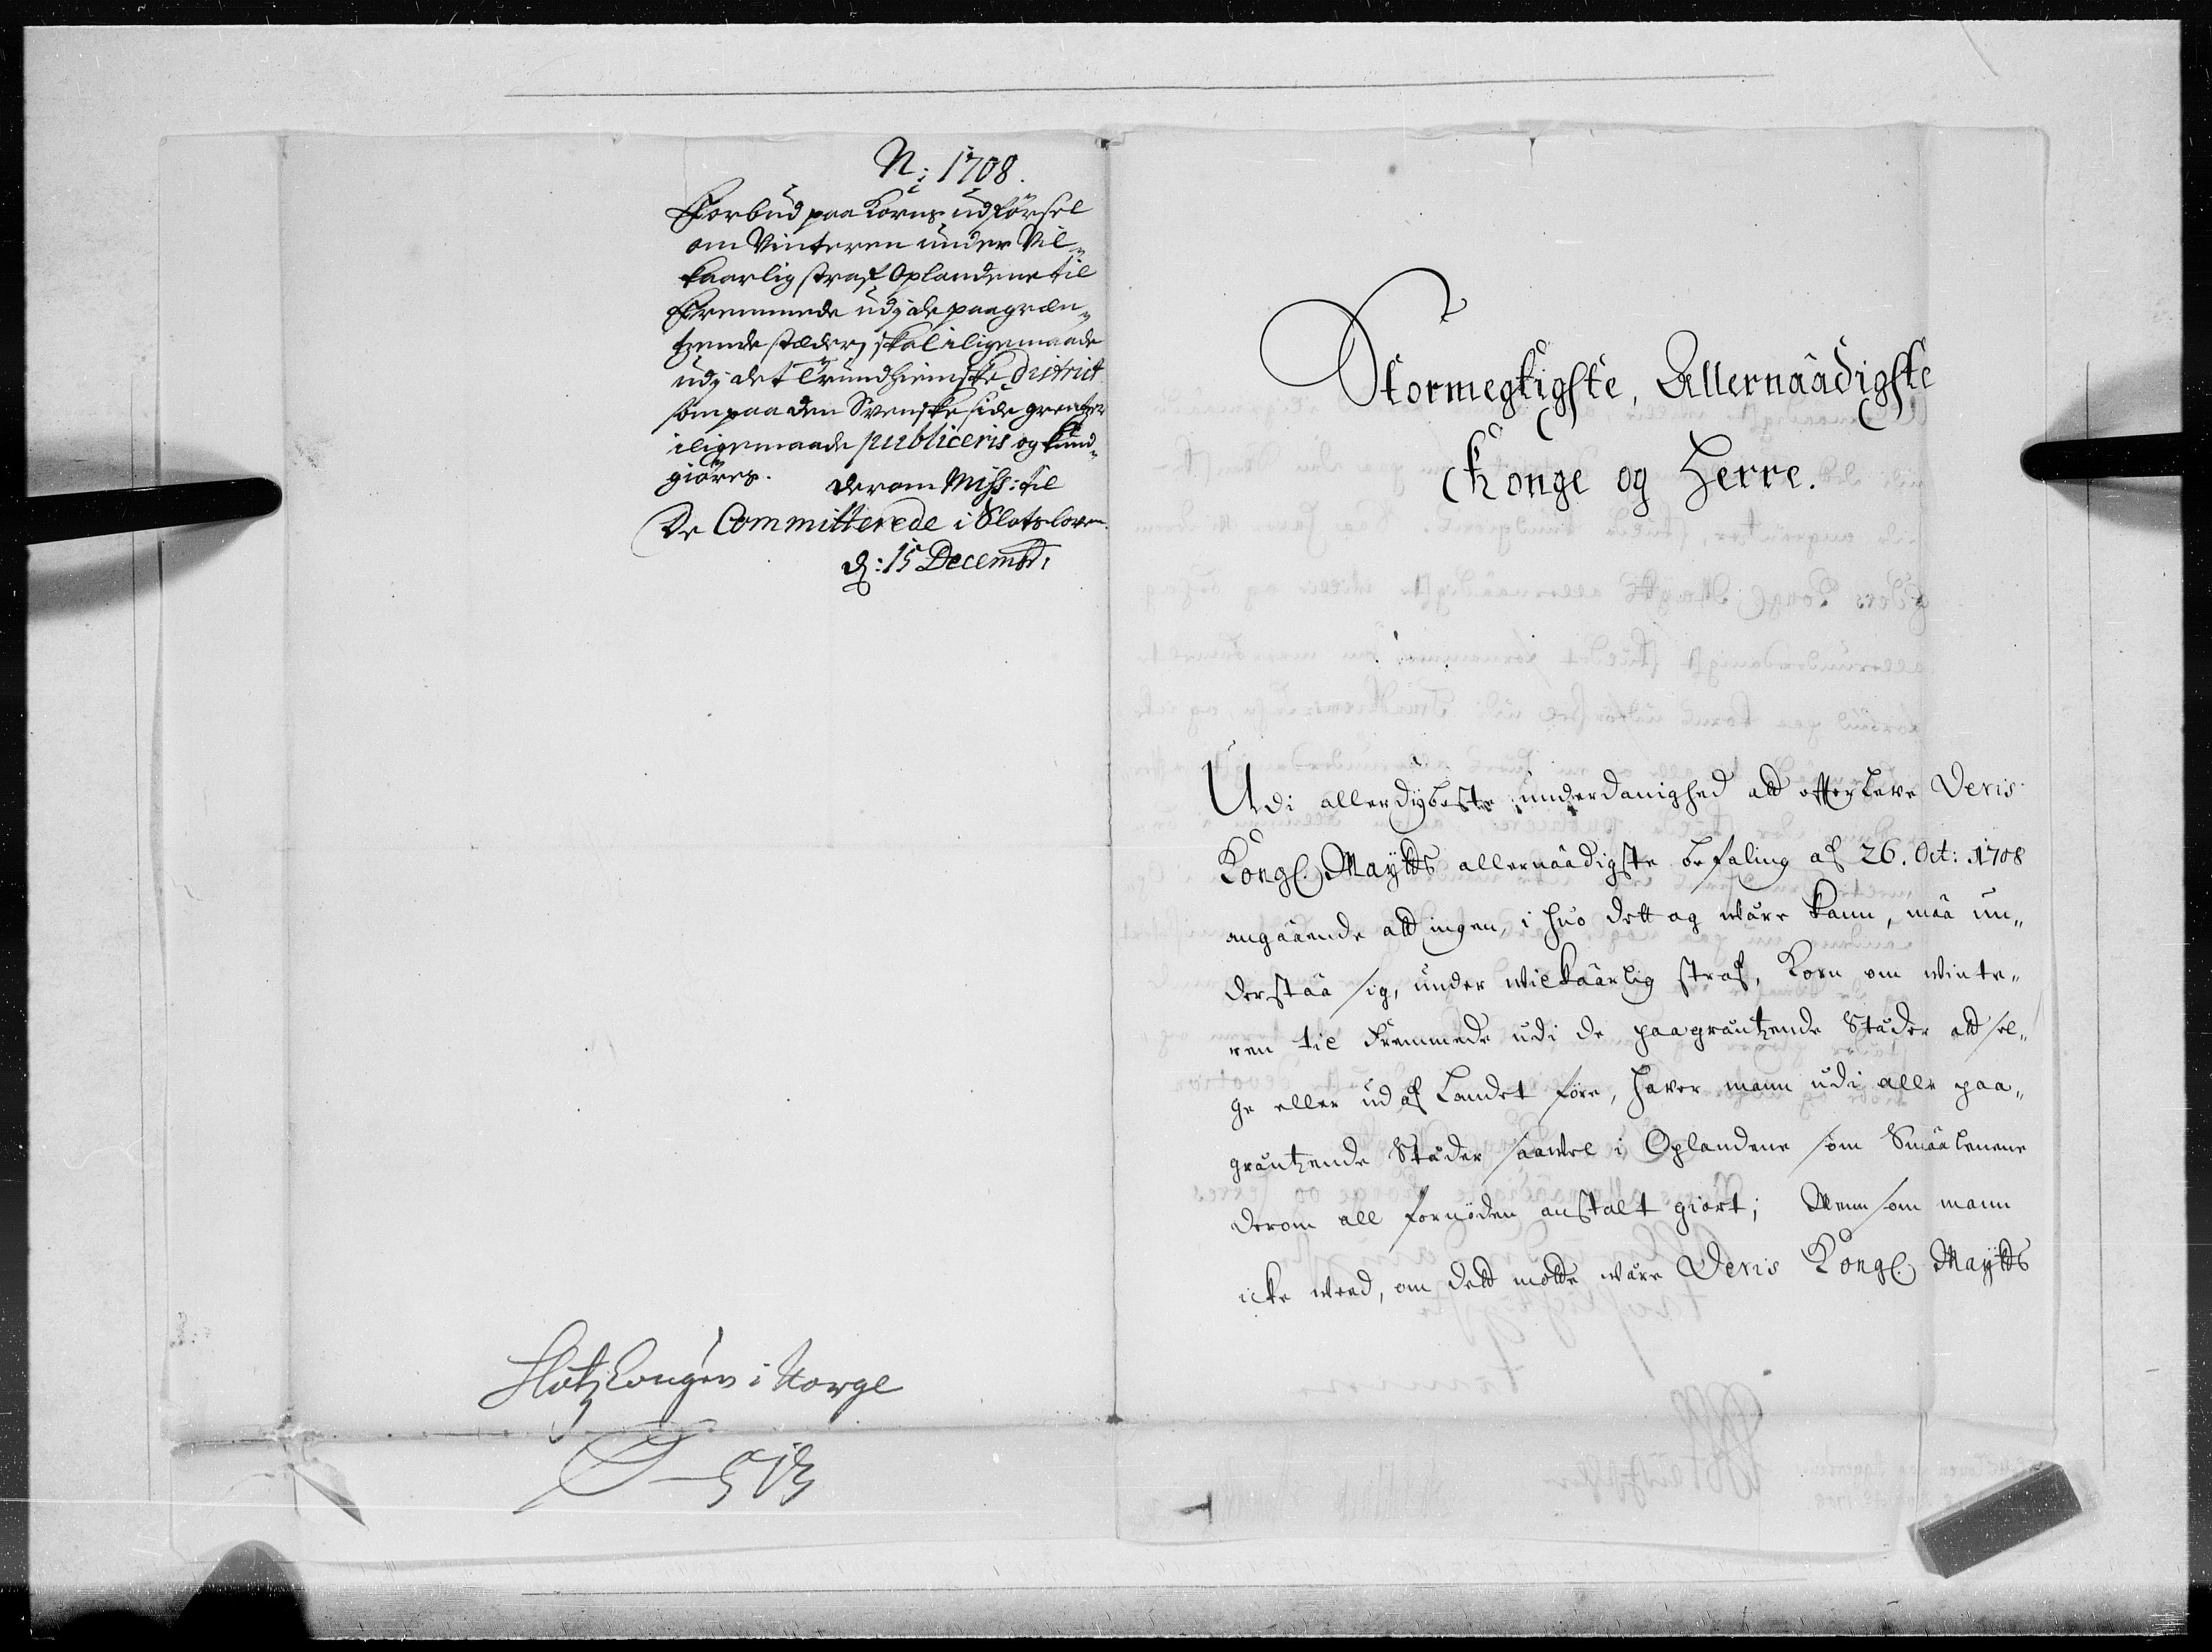 N: 1708.
Forbud paa Korns udførsel
om Vinteren under Vil„
kaarlig straf Oplandene til
Fremmede udj de paagræn„
tzende stæder, skal iligemaade
udj det Trundhiemske District
som paa den Svenske side grentzer
iligemaade publiceris og kund„
giöres. derom Miss: til
De Committerede i Slotsloven
d: 15 Decembr:
Slotz Lougen i Norge
Stormegtigste, Allernaadigste
Konge og Herre.
Udi allerdybeste underdanighed att efterleve Deris
Kongl. Maytts allernaadigste befaling af 26. Oct: 1708
angaaende att ingen, i hvo dett og være kann, maa un„
derstaa sig, under vilkaarlig straf, Korn om vinte„
ren til Fremmede udi de paagräntzende Städer att sel„
ge eller ud af Landet före, haver mann udi alle paa„
gräntzende Städer saavel i Oplandene som Smaalenene
derom all fornöden anstalt giort; Menn som mann
icke veed, om dett motte være Deris Kongl. Maytts